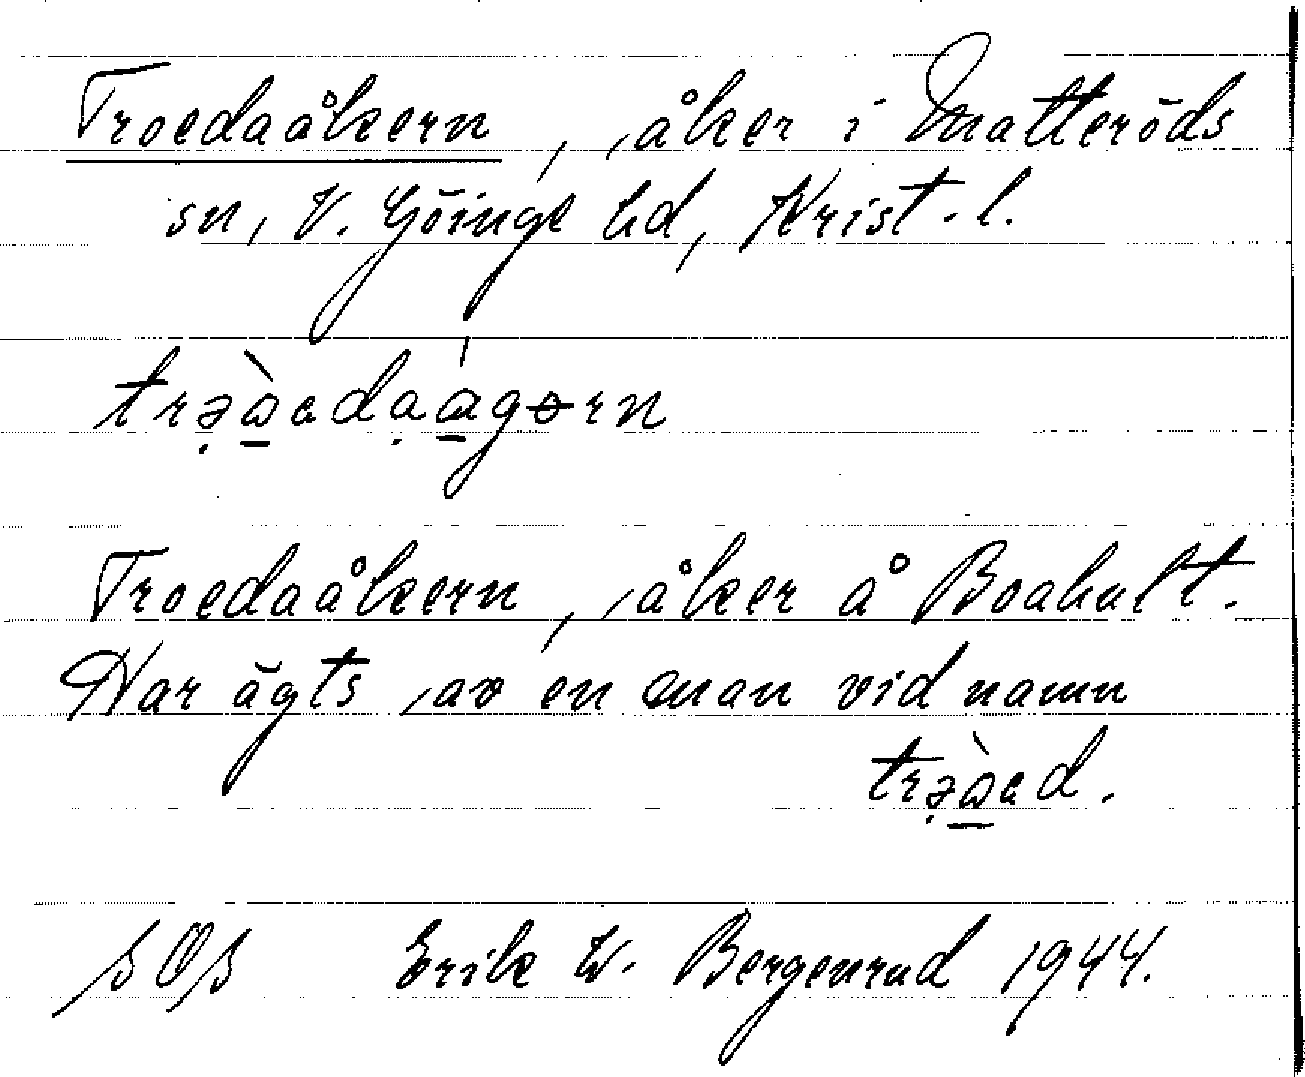 Troedaåkern, åker i Matteröds
sn, V. Göinge hd, Krist. l.
Troedaåkern, åker å Boahult.
Har ägts av en man vid namn
SOS Erik W. Bergenrud 1944.